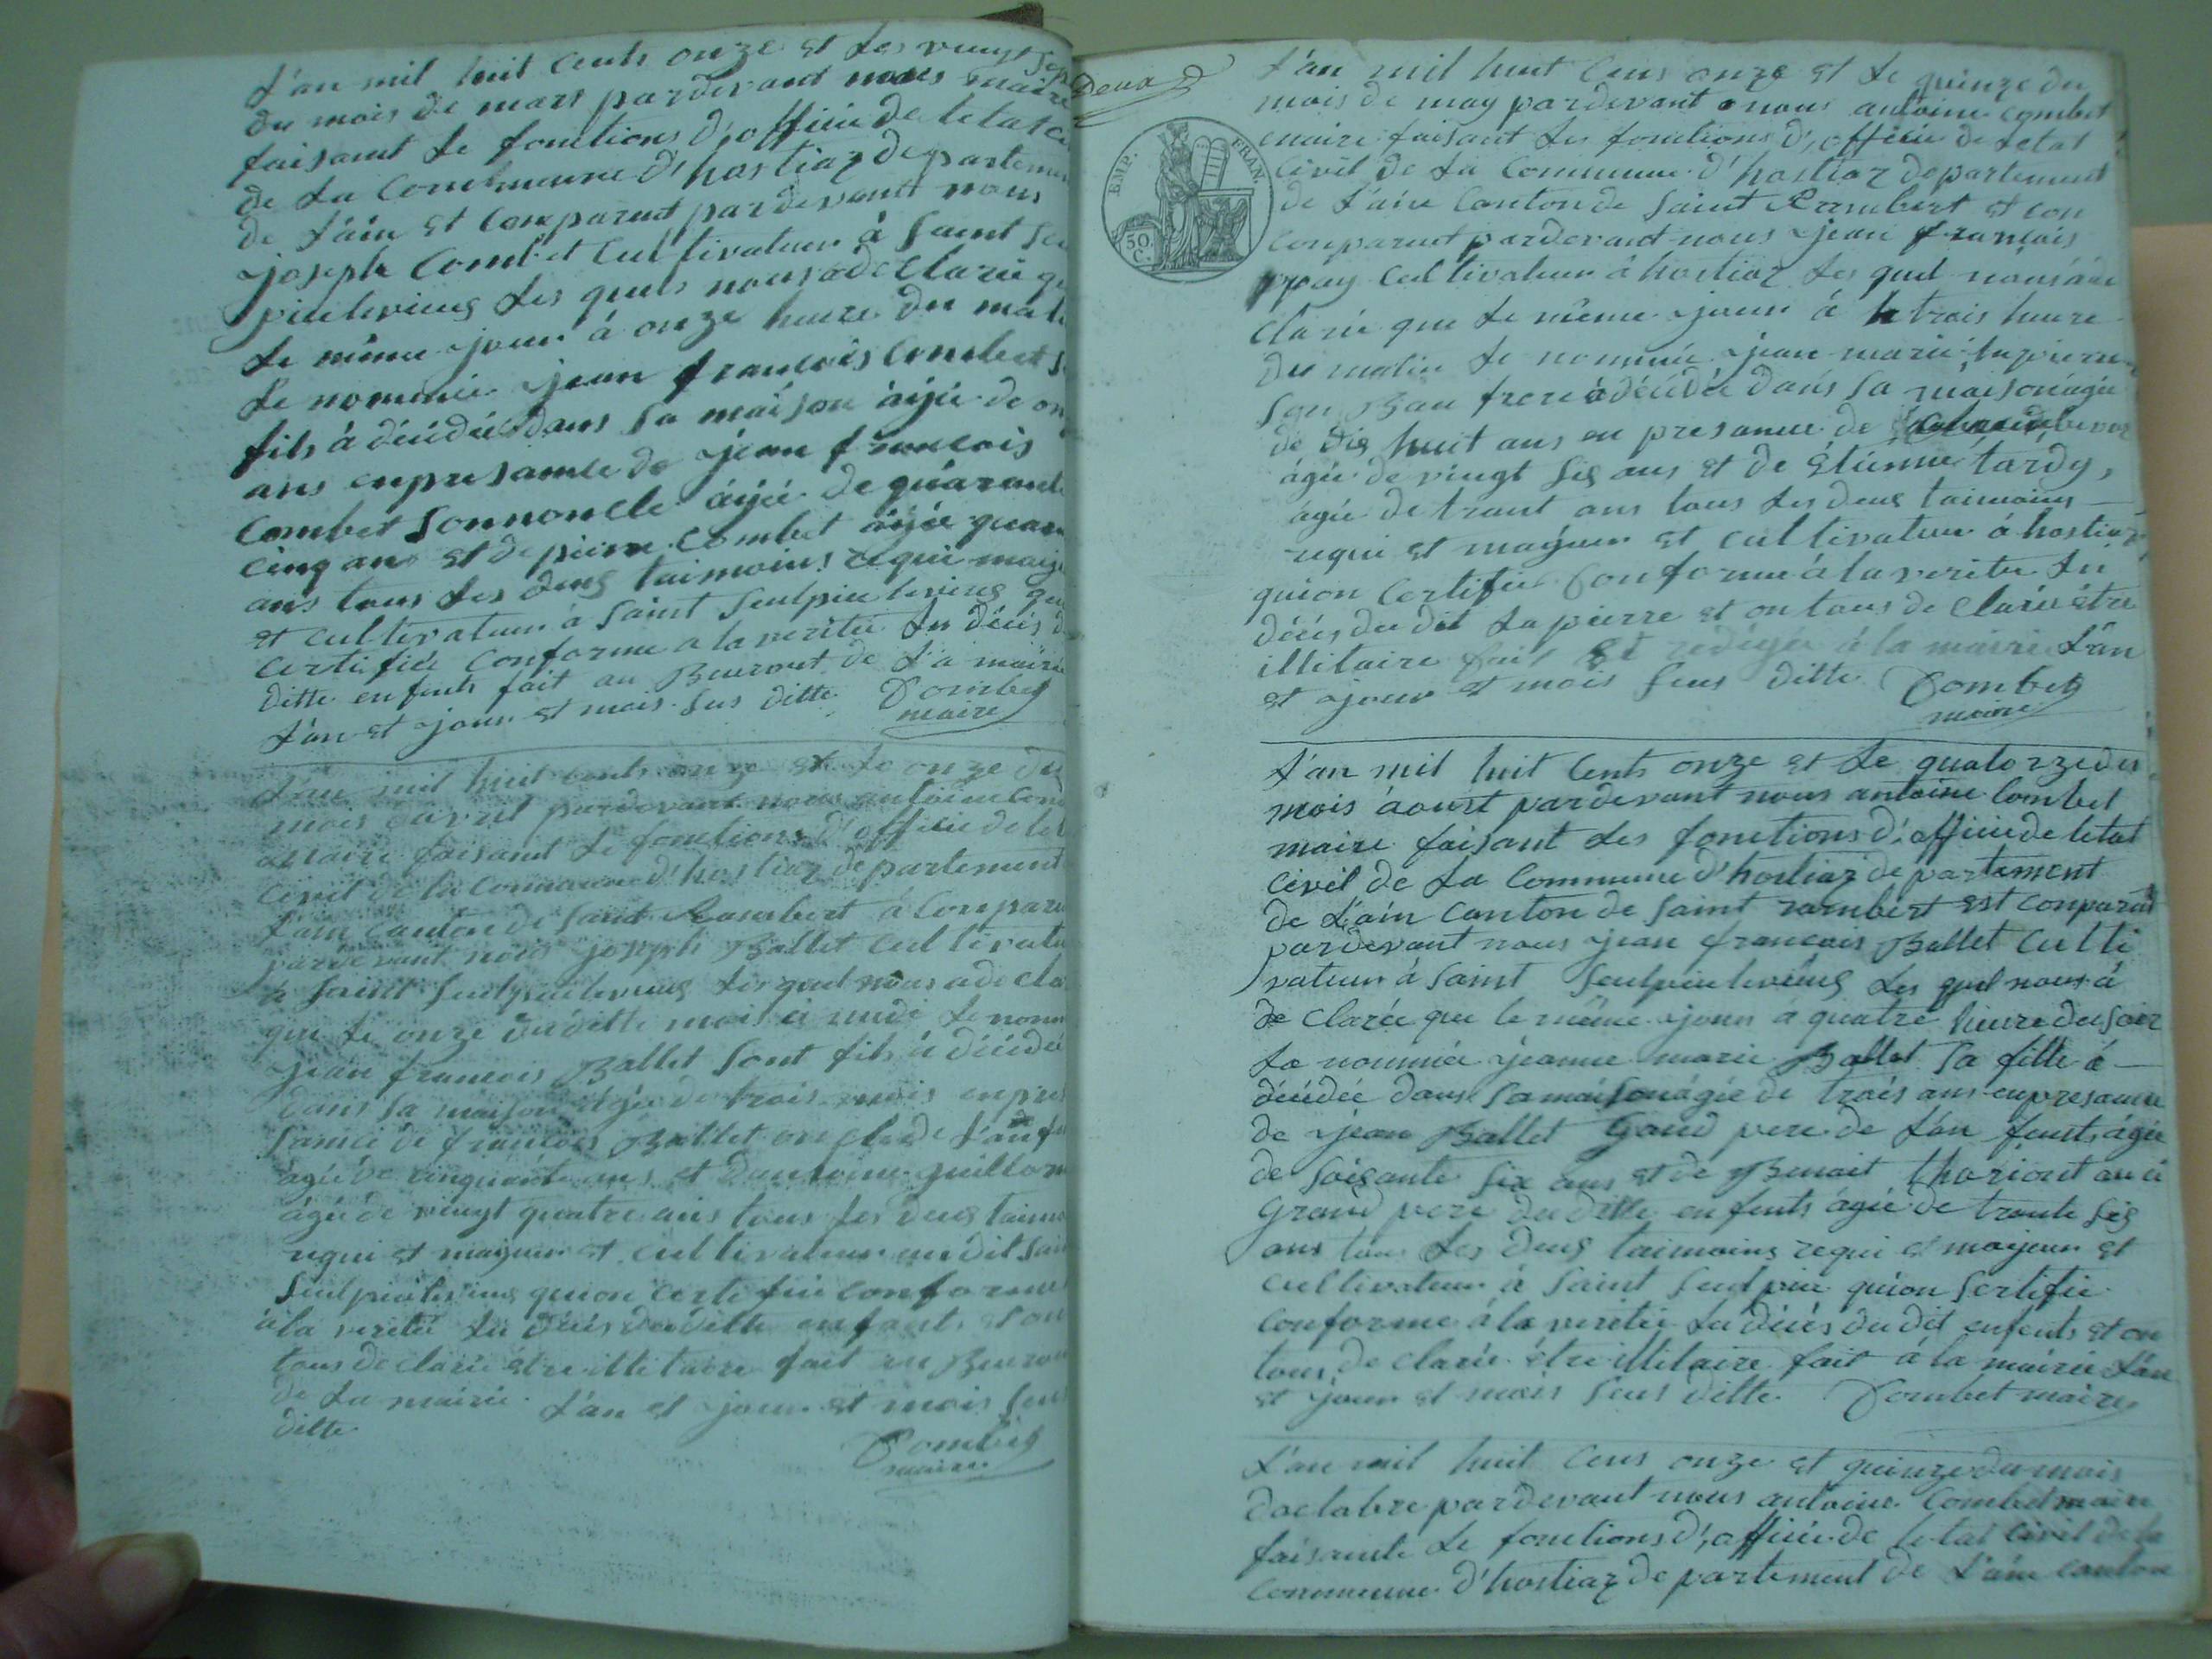 L'an mil huit cents onze et les vingt sep
du mois de mars pardevant nous maire
faisant le fonctions d'officié de letat ci
de La Commune d'hostiaz departemen
de L'ain et comparut pardevant nous
joseph Combet Cultivateur à Saint Seu
picelevieus Les quels nous a declarié qu
Le même jour à onze heure du mati
Le nommée jean francois Combet s
fils à décidée dans sa maison agée de on
ans enpresamce de jean francois
Combet sonnoncle agée de quarante
cinq ans et de pierre Combet agée quara
ans tous les deus taimoins requi maje
et cultivateur à Saint Seulpice levieus qu
certifiée Conforme a la veritée Lu décés d
ditte enfents fait au Beurout de La mairie
L'an et jour et mois sus ditte Combet
maire
L'an mil huit cents onze et le onze du
mois d'avril pardevant nous antoine Com
maire faisant le fonctions d'officié de let
civil de la Commune d'hostiaz departement
L'ain canton de Saint Rambert à Conparu
pardevant nous joseph Ballet cultivateu
à Saint Seulpicelevieus Lesquel nous a decla
que le onze duditte mois à midé le nomm
jean francois Ballet sont fils à décidée
dans sa maison agée de trois mois enpres
samce de francois Ballet oncle de L'anfa
agée de cinquante ans et d'antoine guillom
agée de vingt quatre ans tous les deus taimo
requi et majeur et cultivateur audit Sain
Seulpicelevieus quion certifiée conforme
à la veritée Lu décés duditte enfants et on
tous declarié être illitaire fait au Beurou
de La mairie L'an et jour et mois sus
ditte
Combet
maire
deux
EMP. FRAN.
50. C.
L'an mil huit Cens onze et le quinze du
mois de may pardevant nous antoine combet
maire faisant les fonctions d'officié de Letat
civil de La Commune d'hostiaz departement
de L'ain Canton de Saint Rambert et con
conparut pardevant nous jean francois
pray cultivateur à hostiaz Les quel nous à de
clarié que le même jour à trois heure
du matin Le nommée jean marie Lapierre
son Bau frere à décidée dans sa maison agée
de dis huit ans en presamce de
agée de vingt sis ans et de étienne tardy,
agée de trant ans tous les deus taimoins
requi et majeur et cultivateur à hostiaz
quion certifiée Conforme à la veritée Lu
décés du dit Lapierre et on tous declarié étre
illitaire fait et redigée à la mairie L'an
et jour et mois sus ditte Combet
maire
L'an mil huit Cents onze et le quatorze du
mois d'aoust pardevant nous antoine Combet
maire faisant Les fonctions d'officié de letat
civil de La Commune d'hostiaz departement
de L'ain canton de Saint rambert est conparut
pardevant nous jean francois Ballet culti
vateur à Saint Seulpicelevieus Les quel nous à
declarée que le même jour à quatre heure du soir
La nommée jeanne marie Ballet sa fille à
décidée dans sa maison agée de trois ans enpresamce
de jean Ballet Gand pere de L'an fents agée
de soisante six ans et de Benoit thoriont au ci
Grand pere du ditte enfents agée de trante sis
ans tous Les deus taimoins requi et majeur et
cultivateur à Saint Seulpice quion sertifie
Conforme à la veritée Lu décés du dit enfents et on
tous declarié étre illitaire fait à la mairie L'an
et jour et mois sus ditte Combet maire
L'an mil huit Cens onze et quinze du mois
doctobre pardevant nous antoine Combet maire
faisante Le fonctions d'officié de letat civil de la
Commune d'hostiaz departement de L'ain canton